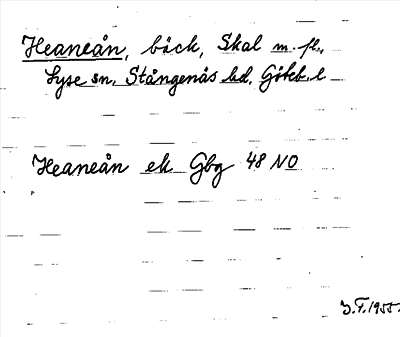 Heaneån, bäck, Skal m. fl.,
Lyse sn, Stångenäs hd, Göteb. l
Heaneån ek Gbg 48 NO
J.F. 1955.